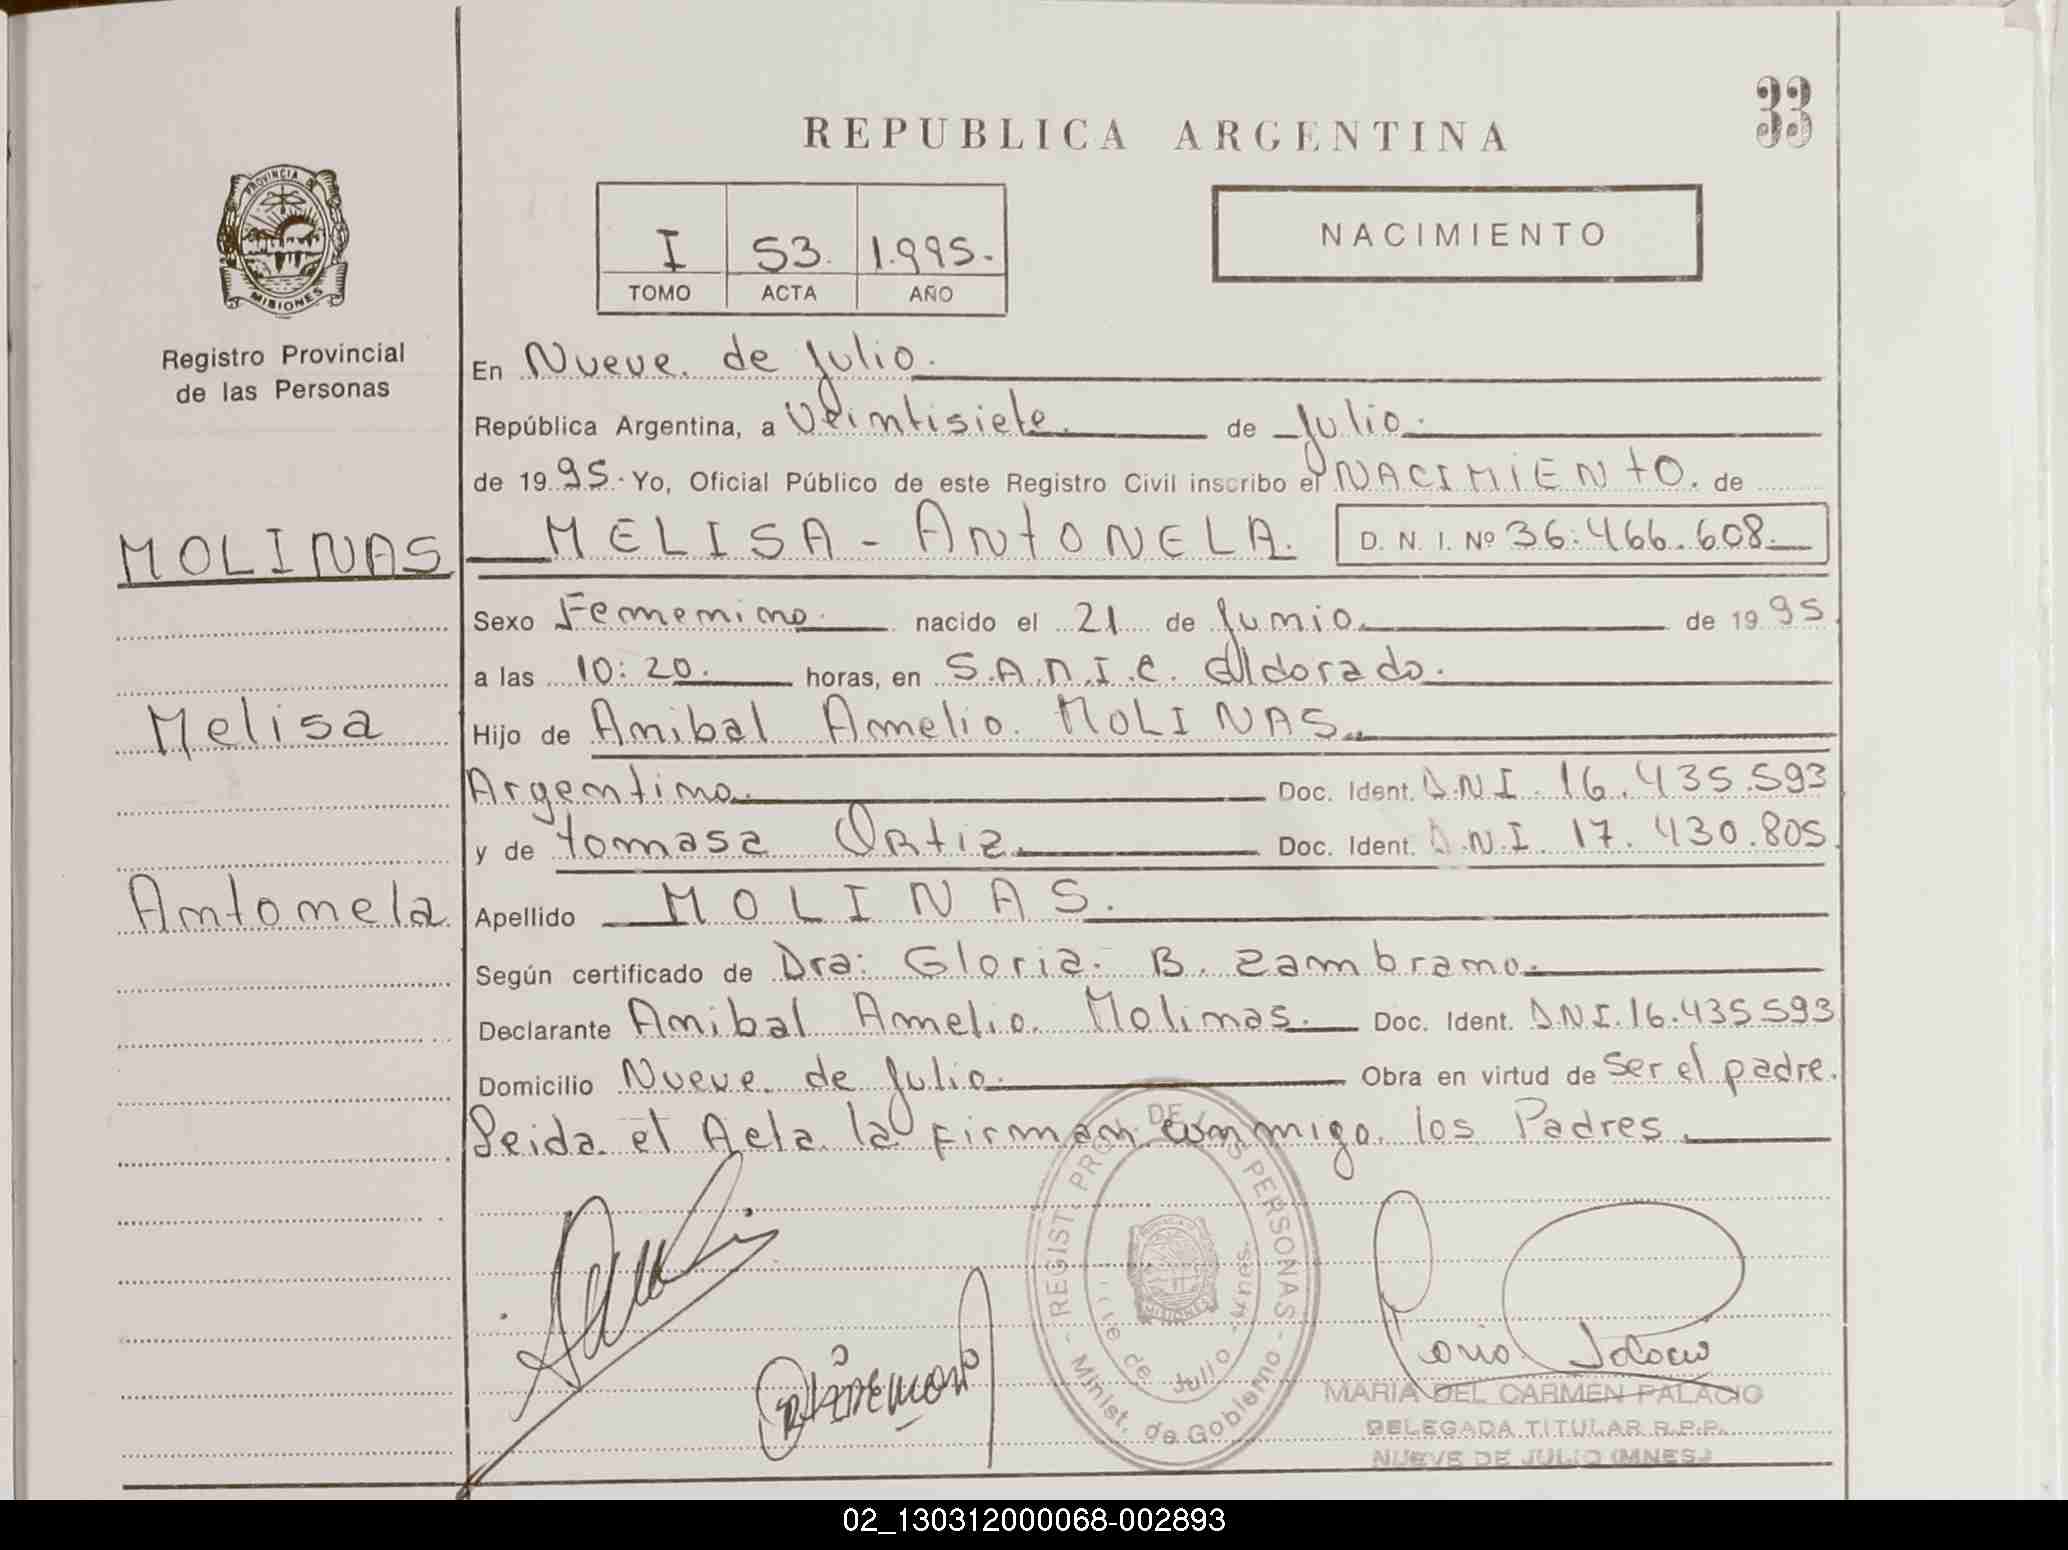 33
REPUBLICA ARGENTINA
PROVINCIA DE
MISIONES
Registro Provincial
de las Personas
I 53. 1.995.
TOMO ACTA AÑO
NACIMIENTO
En Nueve de Julio.
República Argentina, a Veintisiete. de Julio.
de 1995. Yo, Oficial Público de este Registro Civil inscribo el NACIMIENTO. de
MOLINAS
MELISA - ANTONELA. D. N. I. Nº 36.466.608.
Sexo Femenino. nacido el 21 de Junio de 1995
a las 10:20. horas, en S.A.N.I.C. Eldorado.
Melisa
Hijo de Anibal Amelio MOLINAS
Argentino. Doc. Ident. D.N.I. 16.435.593
y de tomasa Ortiz Doc. Ident. D.N.I. 17.430.805
Antonela
Apellido MOLINAS.
Según certificado de Dra: Gloria. B. Zambrano.
Declarante Anibal Amelio Molinas. Doc. Ident. D.N.I. 16.435593
Domicilio Nueve de Julio. Obra en virtud de ser el padre.
Leida el Acta la firman conmigo los Padres
REGIST. PROV. DE LAS PERSONAS
Minist. de Gobierno
de Julio
MISIONES
MARIA DEL CARMEN PALACIO
DELEGADA TITULAR R.P.P.
NUEVE DE JULIO (MNES.)
02_130312000068-002893